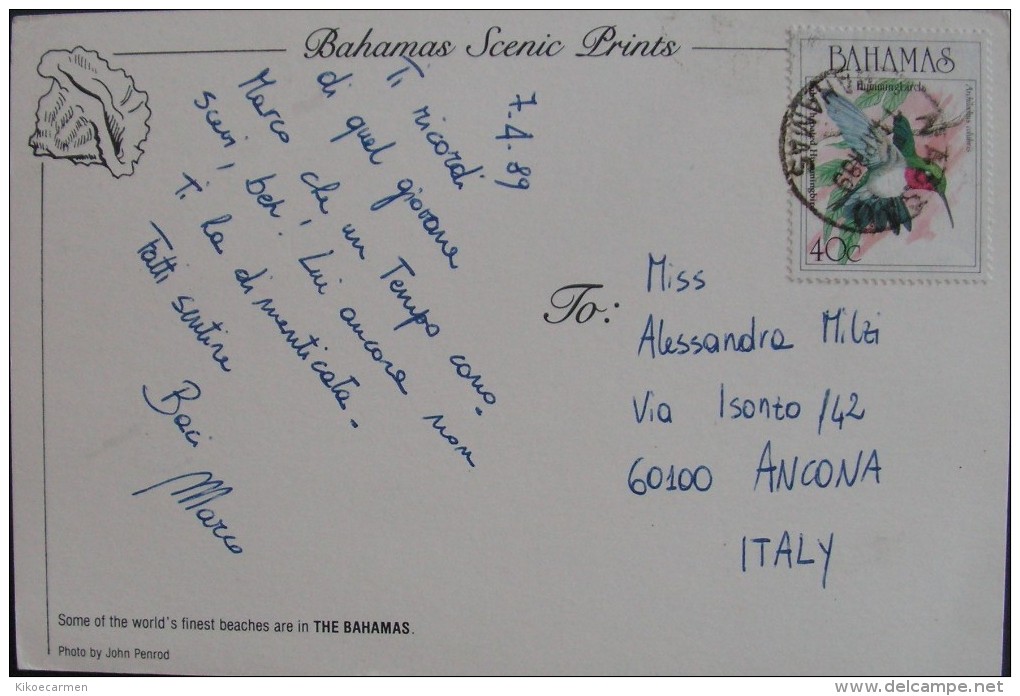 Bahamas Scenic Prints
7.4.89
Ti ricordi
di quel giovane
Marco che, un Tempo cono-
scevi, beh. Lui ancora non
ti ha dimenticata.
Fatti sentire
Baci
Marco
BAHAMAS
Hummingbirds
Archilochus colubris
Ruby-throated Hummingbird
40c
To:
Miss
Alessandra Milzi
Via Isonzo 142
60100 ANCONA
ITALY
Some of the world's finest beaches are in THE BAHAMAS.
Photo by John Penrod
Kikoecarmen
www.delcampe.net